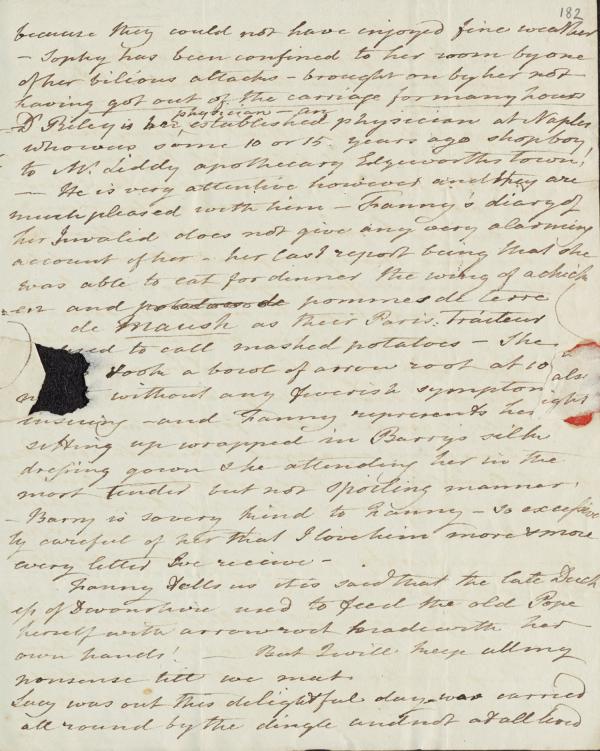 182
because they could not have enjoyed fine weather
- Sophy has been confined to her room by one
of her bilious attacks - brought on by her not
having got out of the carriage for many hours
physician an
Dr Riley is her established physician at Naples
who was some 10 or 15 years ago shopboy
to Mr. Liddy apothecary Edgeworthstown!
- He is very attentive however and they are
much pleased with him - Fanny's diary of
her Invalid does not give any very alarming
account of her - her last report being that she
was able to eat for dinner the wing of a chick
en and potatoes de pommes de terre
de Maush as their Paris Traiteur
used to call mashed potatoes - She
also took a bowl of arrow root at 10
night without any feverish symptom
ensuing - and Fanny represents her
sitting up wrapped in Barry's silk
dressing gown & he attending her in the
most tender but not spoiling manner.
- Barry is so very kind to Fanny - so excessive
ly careful of her that I love him more & more
every letter we receive -
Fanny tells us it is said that the late Duch
ess of Devonshire used to feed the old Pope
herself with arrowroot made with her
own hands! - But I will keep all my
nonsense till we meet
Lucy was out this delightful day was carried
all round by the dingle and not at all tired